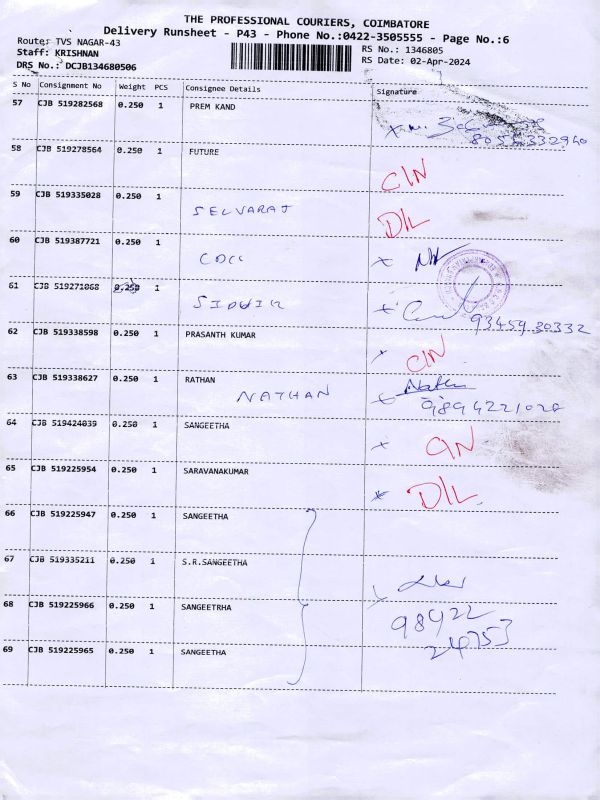 THE PROFESSIONAL COURIERS, COIMBATORE
Delivery Runsheet - P43 - Phone No.:0422-3505555 - Page No.:6
Route: TVS NAGAR-43
RS No.: 1346805
Staff: KRISHNAN
RS Date: 02-Apr-2024
DRS No.: DCJB134680506
S No Consignment No Weight PCS Consignee Details Signature
57 CJB 519282568 0.250 1 PREM KAND
58 CJB 519278564 0.250 1 FUTURE C/N
59 CJB 519335028 0.250 1 SELVARAJ D/L
60 CJB 519387721 0.250 1
61 CJB 519271068 0.250 1
93459 30332
62 CJB 519338598 0.250 1 PRASANTH KUMAR C/N
63 CJB 519338627 0.250 1 RATHAN
NATHAN
64 CJB 519424039 0.250 1 SANGEETHA C/N
65 CJB 519225954 0.250 1 SARAVANAKUMAR D/L
66 CJB 519225947 0.250 1 SANGEETHA
67 CJB 519335211 0.250 1 S.R.SANGEETHA
68 CJB 519225966 0.250 1 SANGEETRHA 98422
24753
69 CJB 519225965 0.250 1 SANGEETHA